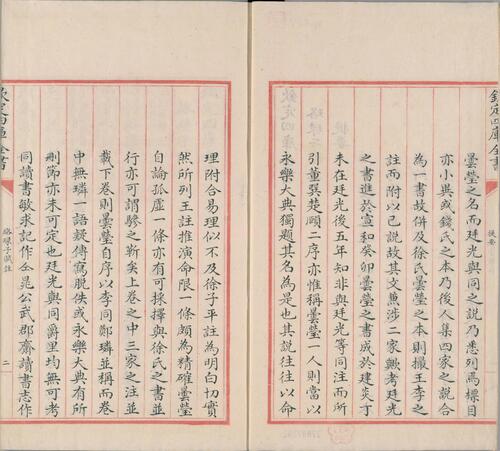 欽定四庫全書
提要
曇瑩之名而廷光與同之説乃悉列爲標目
亦小異或錢氏之本乃後人集四家之說合
為一書故併及徐氏曇瑩之本則撮王李之
註而附以己說故其文兼涉二家歟考廷光
之書進於宣和癸卯曇瑩之書成於建炎丁
未在廷光後五年知非與廷光等同注而所
引董巽楚頤二序亦惟稱曇瑩一人則當以
永樂大典獨題其名為是也其說往往以命
理附合易理似不及徐子平註為明白切實
然所列王註推演命限一條頗為精確曇瑩
自論孤虛一條亦有可採擇與徐氏之書並
行亦可謂驂之靳矣上卷之中三家之注並
載下卷則曇瑩自序以李同鄭璘並稱而卷
中無璘一語疑傳寫脫佚或永樂大典有所
刪節亦未可定也廷光與同爵里均無可考
同讀書敏求記作仝晁公武郡齋讀書志作
欽定四庫全書
珞琭子賦註
二